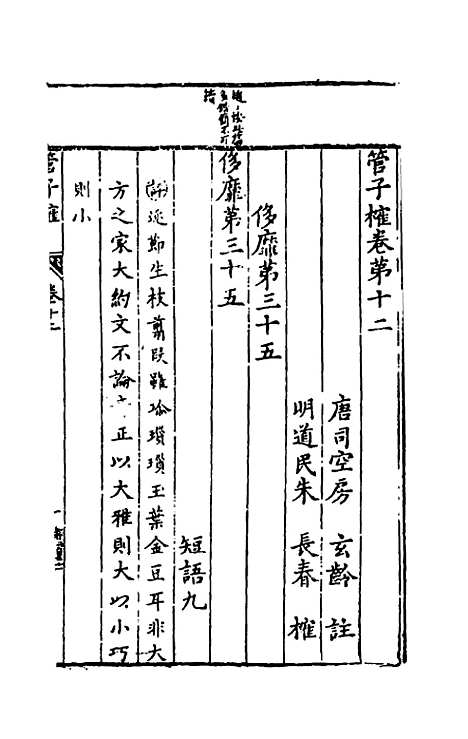 管子榷卷第十二
唐司空房 玄齡 註
明道民朱 長春 榷
侈靡第三十五
侈靡第三十五
短語九
延節生枝翦段雖冷瓚瓚玉葉金豆耳非大
方之家大約文不論 正以大雅則大以小巧
則小
管子榷
卷十二
一